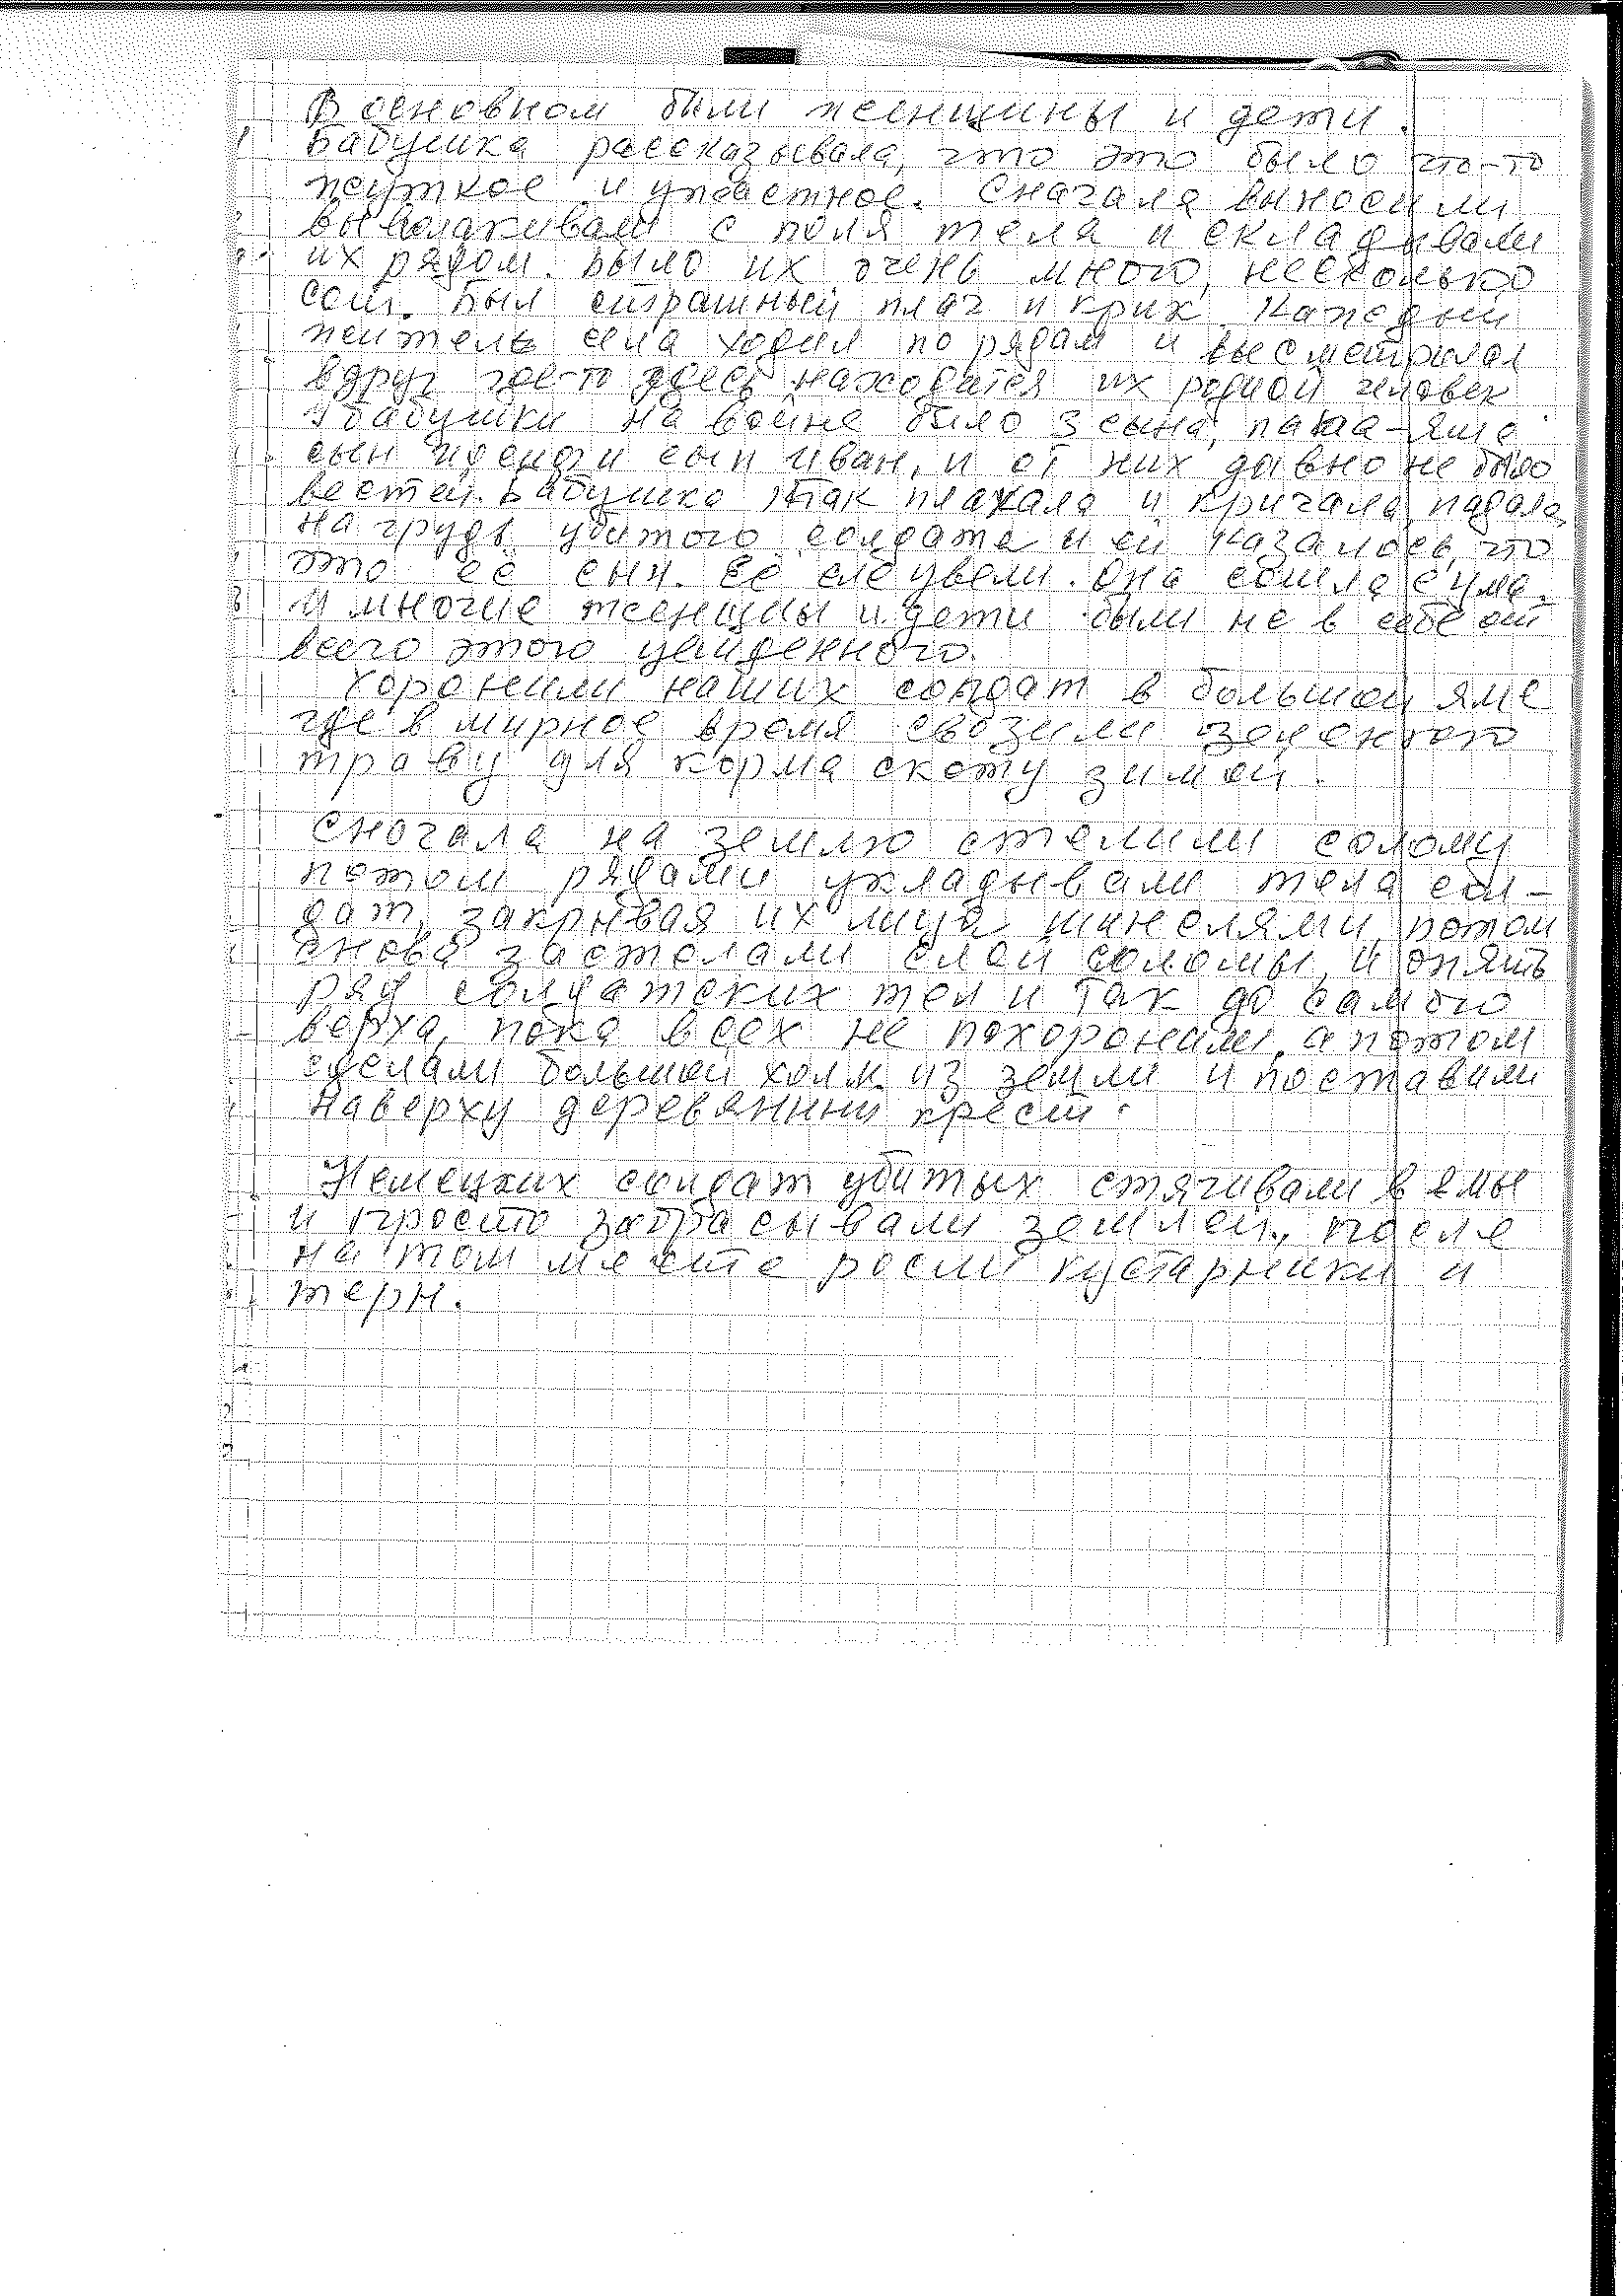 В основном были женщины и дети.
Бабушка рассказывала, что это было что-то
жуткое и ужастное. Сначала выносили
выволакивали с поля тела и складывали
их рядом. Было их очень много, несколько
сот. Был страшный плач и крик. Каждый
житель села ходил по рядам и высматривал
вдруг где-то здесь находится их родной человек
У бабушки на войне было 3 сына, папа-
сын и сын Иван, и от них давно не было
вестей. Бабушка так плакала и кричала, падала
на грудь убитого солдата и ей казалось, что
это её сын. Её еле увели. Она сошла с ума.
И многие женщины и дети были не в себе от
всего этого увиденного.
Хоронили наших солдат в большой яме
где в мирное время свозили зеленою
траву для корма скоту зимой.
Сначала на землю стелили солому
потом рядами укладывали тела сол-
дат, закрывая их лица шинелями, потом
снова застелали слой соломы, и опять
ряд солдатских тел и так до самого
верха, пока всех не похоронили, а потом
сделали большой холм из земли и поставили
наверху деревянный крест.
Немецких солдат убитых стягивали в ямы
и просто забрасывали землей, после
на том месте росли кустарники и
терн.